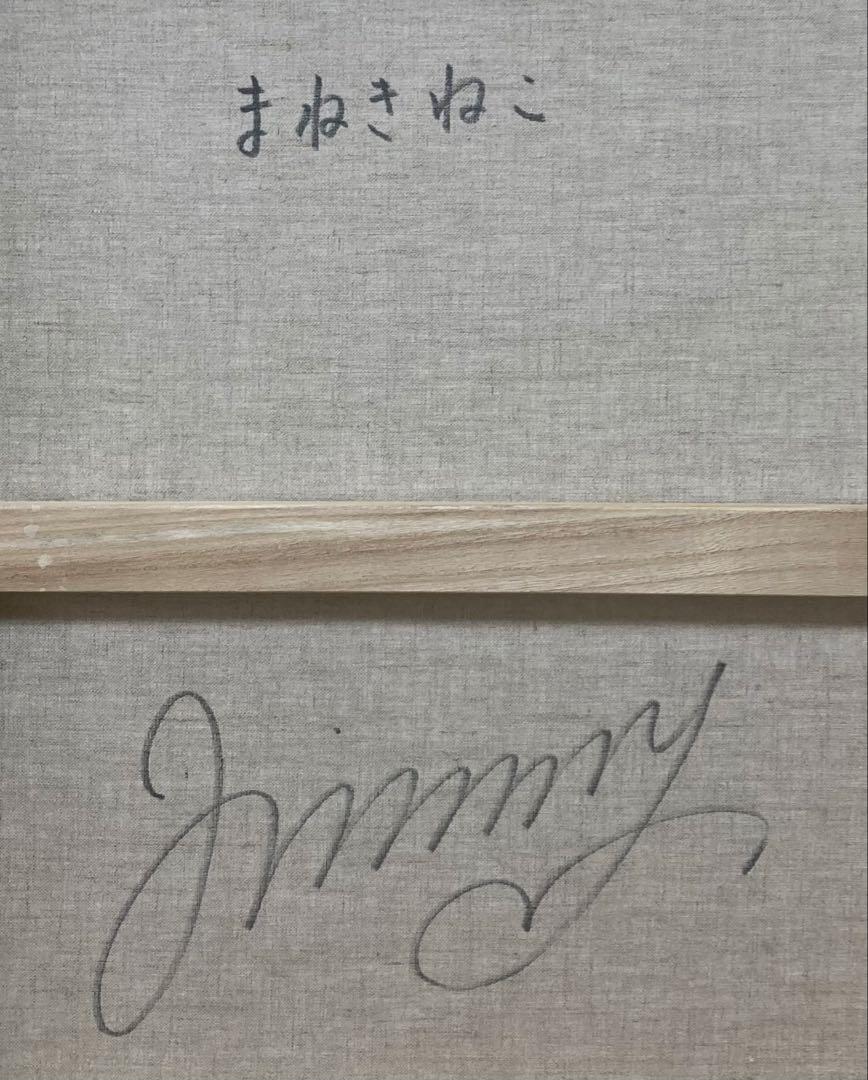 まねきねこ
Jimmy